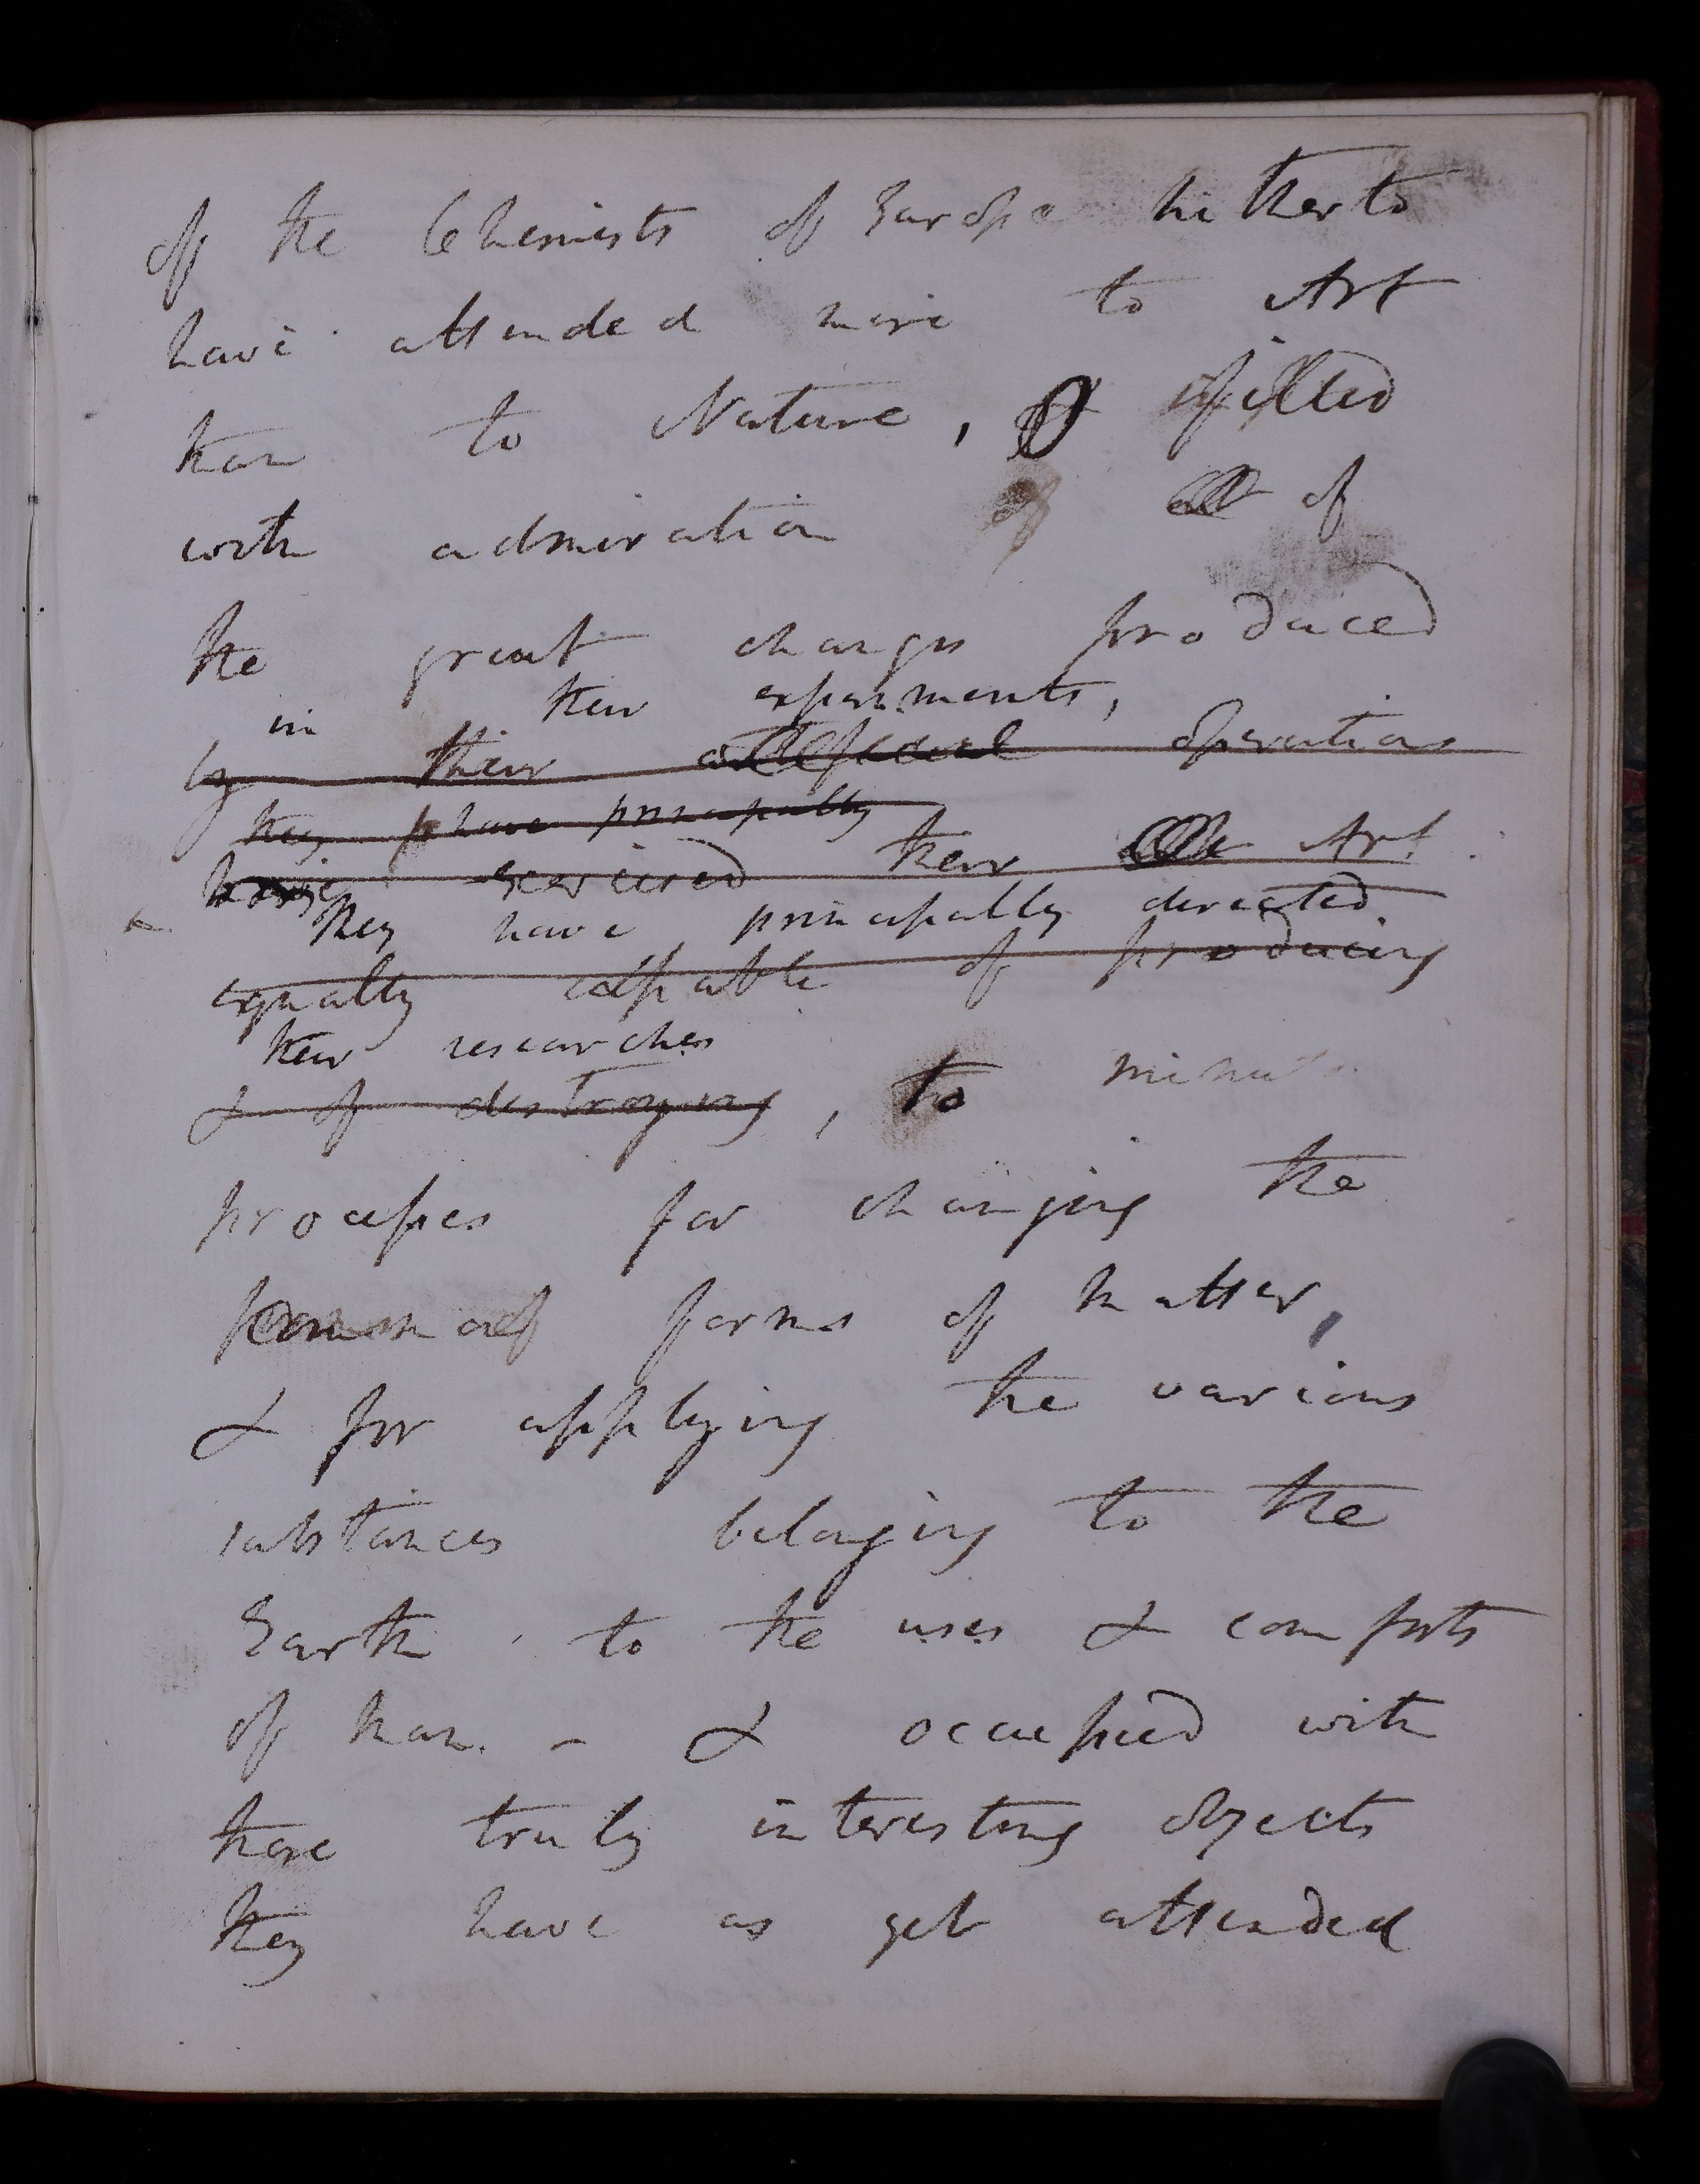 of the Chemists of Europe hitherto
have attended more to Art
than to Nature, filled
with admiration of
the great changes produced
in their experiments,
by their artificial operations
they have principally
having exercised their Art
they have principally directed
equally capable of producing
their researches
& of destroying, to minute
processes for changing the
forms of matter,
& for applying the various
substances belonging to the
Earth to the uses & comforts
of man. - & occupied with
these truly interesting objects
they have as yet attended